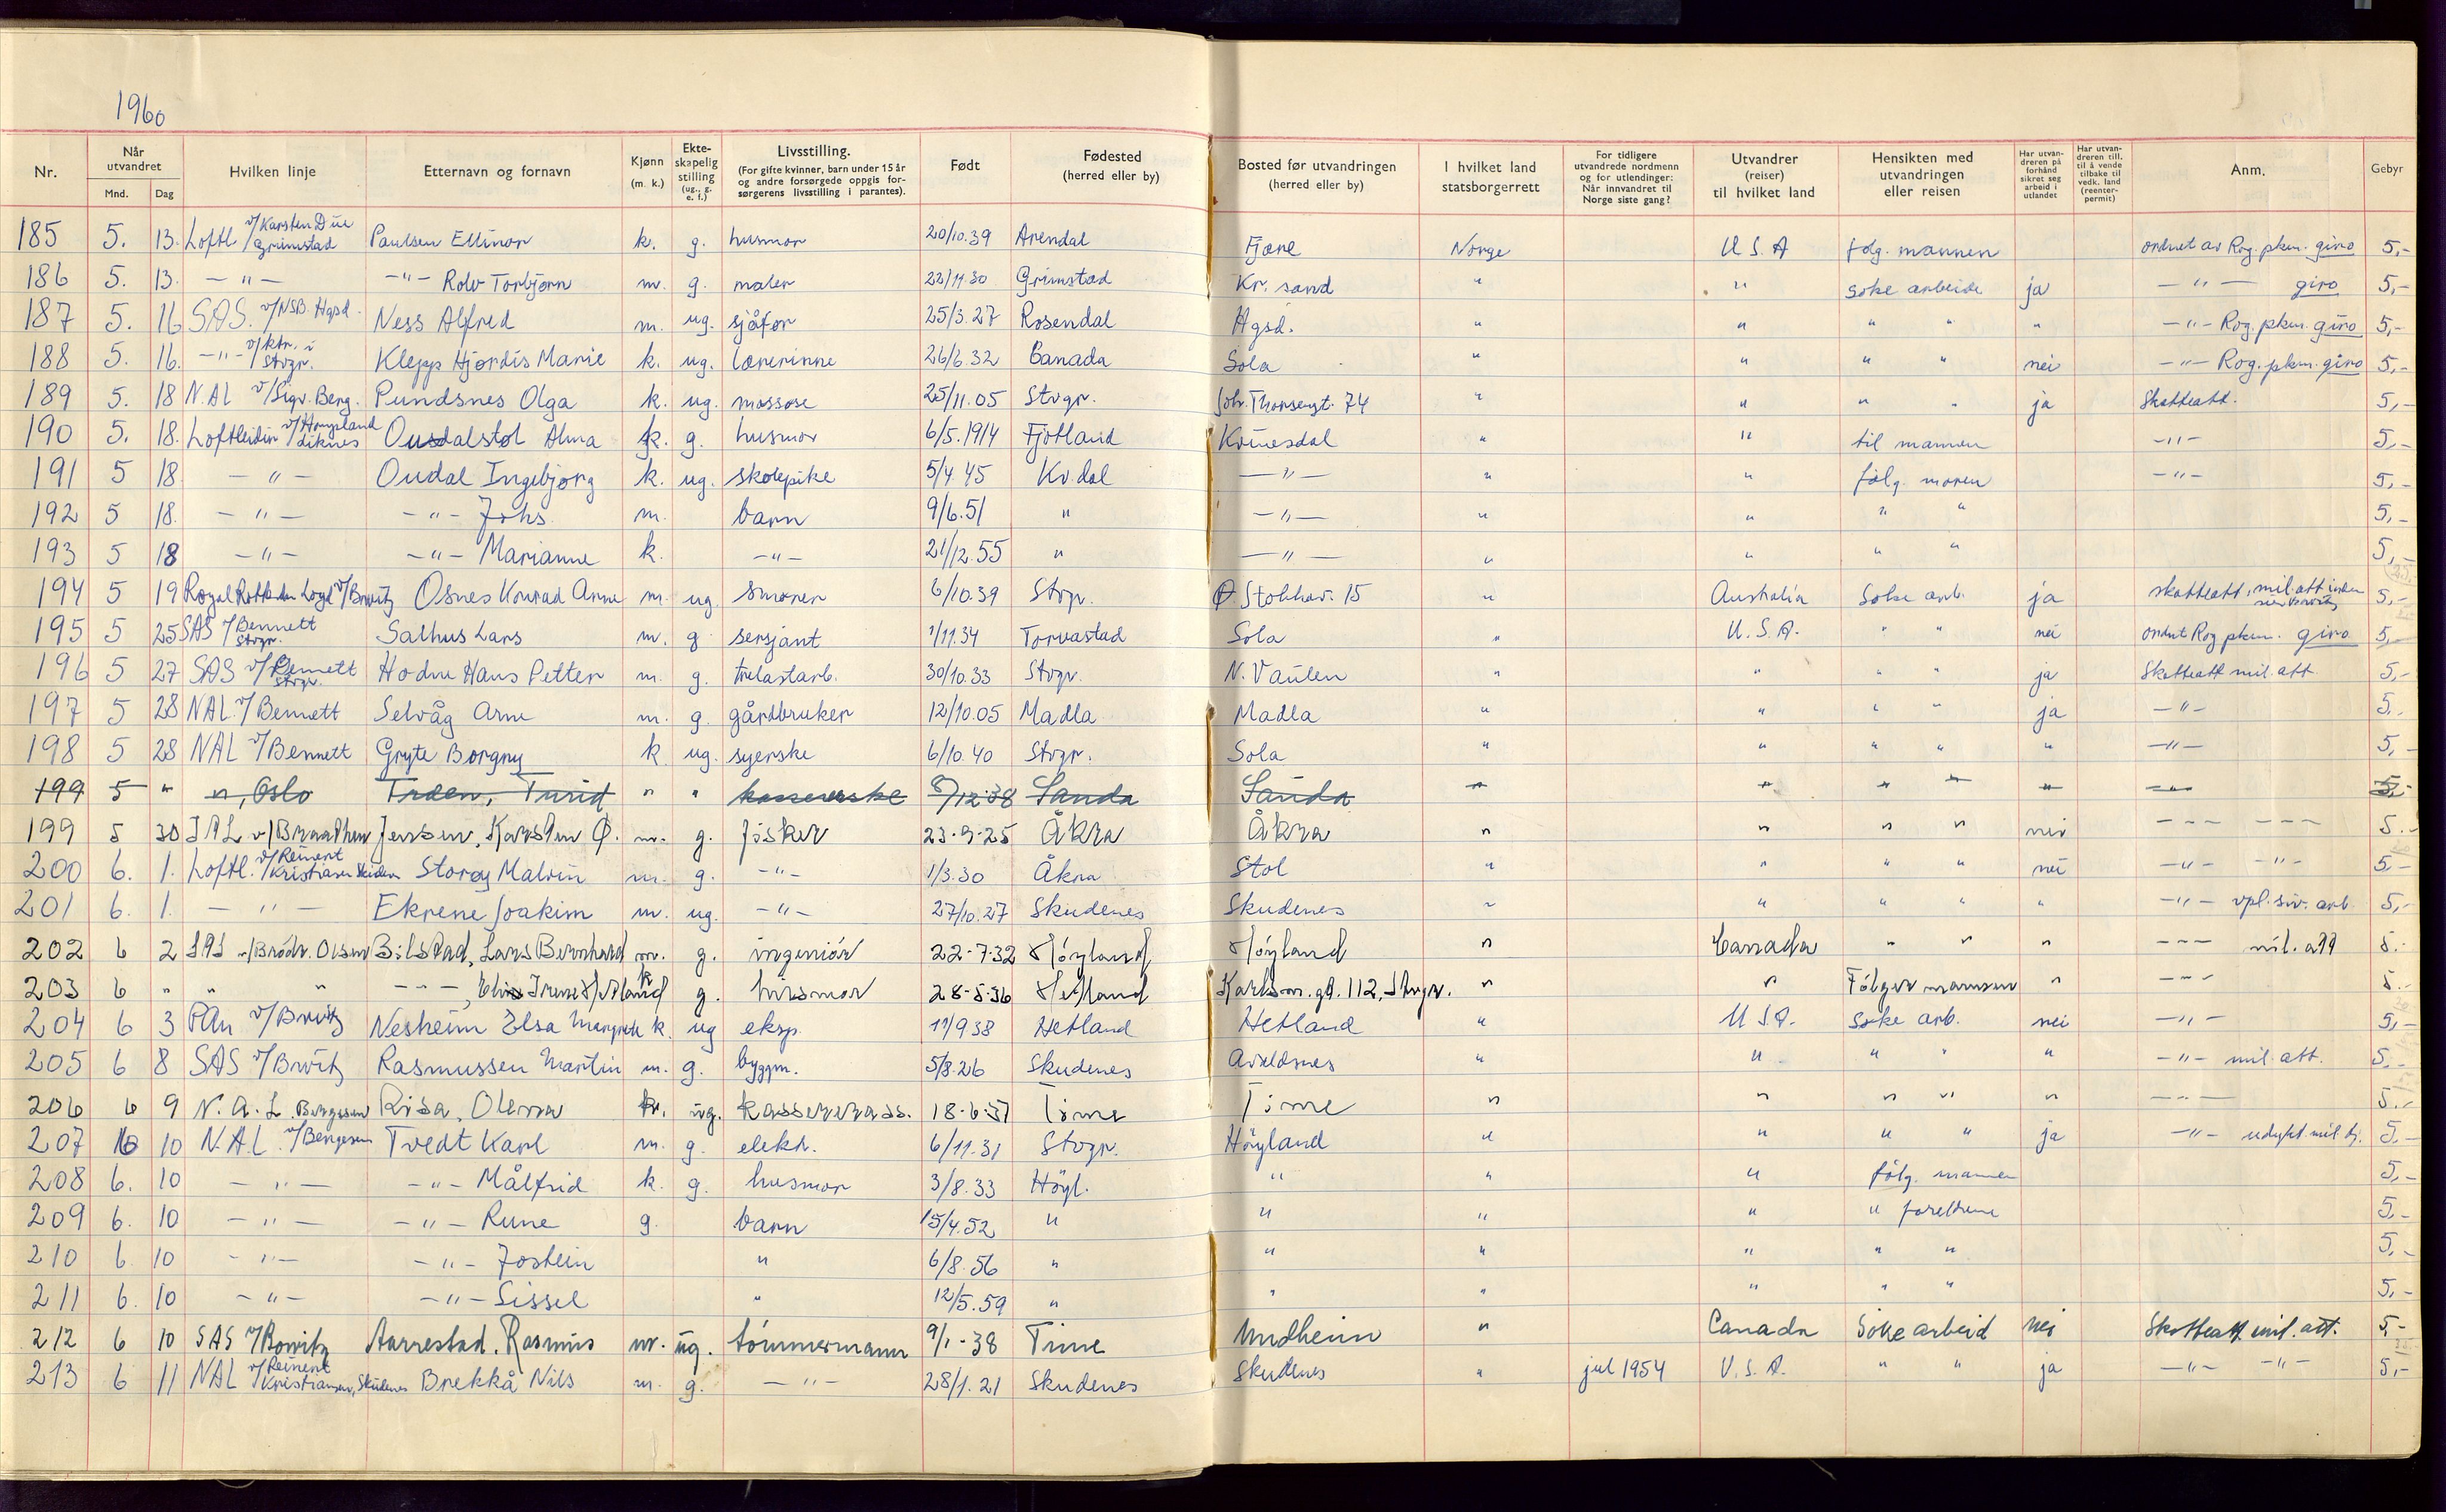 1960
Nr. Når utvandret Mnd. Dag Hvilken linje Etternavn og fornavn Kjønn (m. k.) Ekteskapelig stilling (ug., g. e. f.) Livsstilling. (For gifte kvinner, barn under 15 år og andre forsørgede oppgis forsørgerens livsstilling i parantes). Født Fødested (herred eller by) Bosted før utvandringen (herred eller by) I hvilket land statsborgerrett For tidligere utvandrede nordmenn og for utlendinger: Når innvandret til Norge siste gang? Utvandrer (reiser) til hvilket land Hensikten med utvandringen eller reisen Har utvandreren på forhånd sikret seg arbeid i utlandet Har utvandreren till. til å vende tilbake til vedk. land (reenterpermit) Anm. Gebyr
185 5. 13. Loftl v/Karsten Due Grimstad Paulsen Ellinor k. g. husmor 20/10.39 Arendal Fjære Norge U S A følg. mannen ordnet av Rog. pkm. giro 5,-
186 5. 13. -"- -"- Rolv Torbjørn m. g. maler 22/11.30 Grimstad Kr. sand " " søke arbeide ja -"- giro 5,-
187 5. 16 SAS. v/NSB. Hgsd. Ness Alfred m. ug. sjåfør 25/3.27 Rosendal Hgsd. " " " " " -"- Rog. pkm. giro 5,-
188 5. 16. -"- v/ktr. i Stvgr. Klepp Hjørdis Marie k. ug. lærerinne 26/6.32 Canada Sola " " " " nei -"- Rog. pkm. giro 5,-
189 5. 18 N.AL v/Sigv. Berg. Pundsnes Olga k. ug. massøse 25/11.05 Stvgr. Joh. Thorsengt. 74 " " " " ja Skatteatt. 5,-
190 5. 18. Loftleidir v/Hompland Ousdalstøl Alma k. g. husmor 6/5.1914 Fjotland Kvinesdal " " til mannen -"- 5,-
191 5 18 -"- Oudal Ingebjørg k. ug. skolepike 5/4.45 Kv.dal -"- " " følg. moren -"- 5,-
192 5 18. -"- -"- Johs. m. barn 9/6.51 " -"- " " " " 5,-
193 5 18 -"- -"- Marianne k. -"- 21/12.55 " -"- " " " " 5,-
194 5 19 Royal Rotterdam Loyd v/Bowitz Osnes Konrad Arne m. ug. smører 6/10.39 Stvgr. Ø. Stokkav. 15 " Australia Søke arb. ja skatteatt, mil. att 5,-
195 5 25 SAS v/Bennett Stvgr. Salhus Lars m. g sersjant 1/11.34 Torvastad Sola " U.S.A. " " nei ordnet Rog pkm. giro 5,-
196 5 27 SAS v/Bennett Stvgr. Hodne Hans Petter m. g. trelastarb. 30/10.33 Stvgr. N. Vaulen " " " " ja Skatteatt mil. att. 5,-
197 5 28 NAL v/Bennett Selvåg Arne m. g. gårdbruker 12/10.05 Madla Madla " " " " ja -"- 5,-
198 5 28 NAL v/Bennett Gryte Borgny k ug. syerske 6/10.40 Stvgr. Sola " " " " " -"- 5,-
199 5 " ", Oslo Turid " " 8/12.38 Sanda Sanda " " " " " -"- 5,-
199 5 30 IAL v/Braathen Jensen, Karsten Ø. m. g. fisker 23.9.25 Åkra Åkra " " " " nei --- --- 5.-
200 6. 1. Loftl. v/Reinert Kristiansen Skuden Storøy Malvin m. g. -"- 1/3.30 Åkra Stol " " " " nei -"- -"- 5,-
201 6. 1. -"- Ekrene Joakim m. ug. -"- 27/10.27 Skudenes Skudenes " " " " " -"- vpl. siv. arb. 5,-
202 6 2 SAS v/Brødr. Olsen Bilstad, Lars Bernhard m. g. ingeniør 22-7-32 Høyland Høyland " Canada " " " --- mil. att 5.-
203 6 " " " ---, Irene Hetland k g. husmor 28-5-36 Hetland Karlsm. gt. 112, Stvgr. " " Følger mannen " --- 5.-
204 6 3 PAn v/Bowitz Nesheim Elsa Margrete k. ug eksp. 11/9 38 Hetland Hetland " U S A. Søke arb. nei -"- 5,-
205 6 8 SAS v/Bowitz Rasmussen Martin m. g. byggm. 5/8.26 Skudenes Avaldsnes " " " " " -"- mil. att. 5,-
206 6 9 N.A.L. Bergesen Risa, Olena k. ug. kassererass. 18-6-37 Time Time " " " " " --- 5.-
207 6 10 N.A.L. v/Bergesen Tvedt Karl m. g. elektr. 6/11.31 Stvgr. Höyland " " " " ja -"- utdykt mil. tj. 5,-
208 6. 10 -"- -"- Målfrid k. g. husmor 3/8.33 Höyl. " " " følg. mannen 5,-
209 6. 10 -"- -"- Rune g. barn 15/4.52 " " " " " foreldrene 5,-
210 6. 10 -"- -"- Jostein " 6/8.56 " " " " " " 5,-
211 6. 10 -"- -"- Sissel " 12/5.59 " " " " " " 5,-
212 6 10 SAS v/Bowitz Aarrestad, Rasmus m. ug. tømmermann 9/1-38 Time Undheim " Canada Søke arbeid Nei Skatteatt. mil. att. 5,-
213 6 11 NAL v/Reinert Kristiansen, Skudenes Brekkå Nils m. g. -"- 28/1.21 Skudenes Skudenes " jul 1954 U.S.A. " " ja -"- -"- 5,-